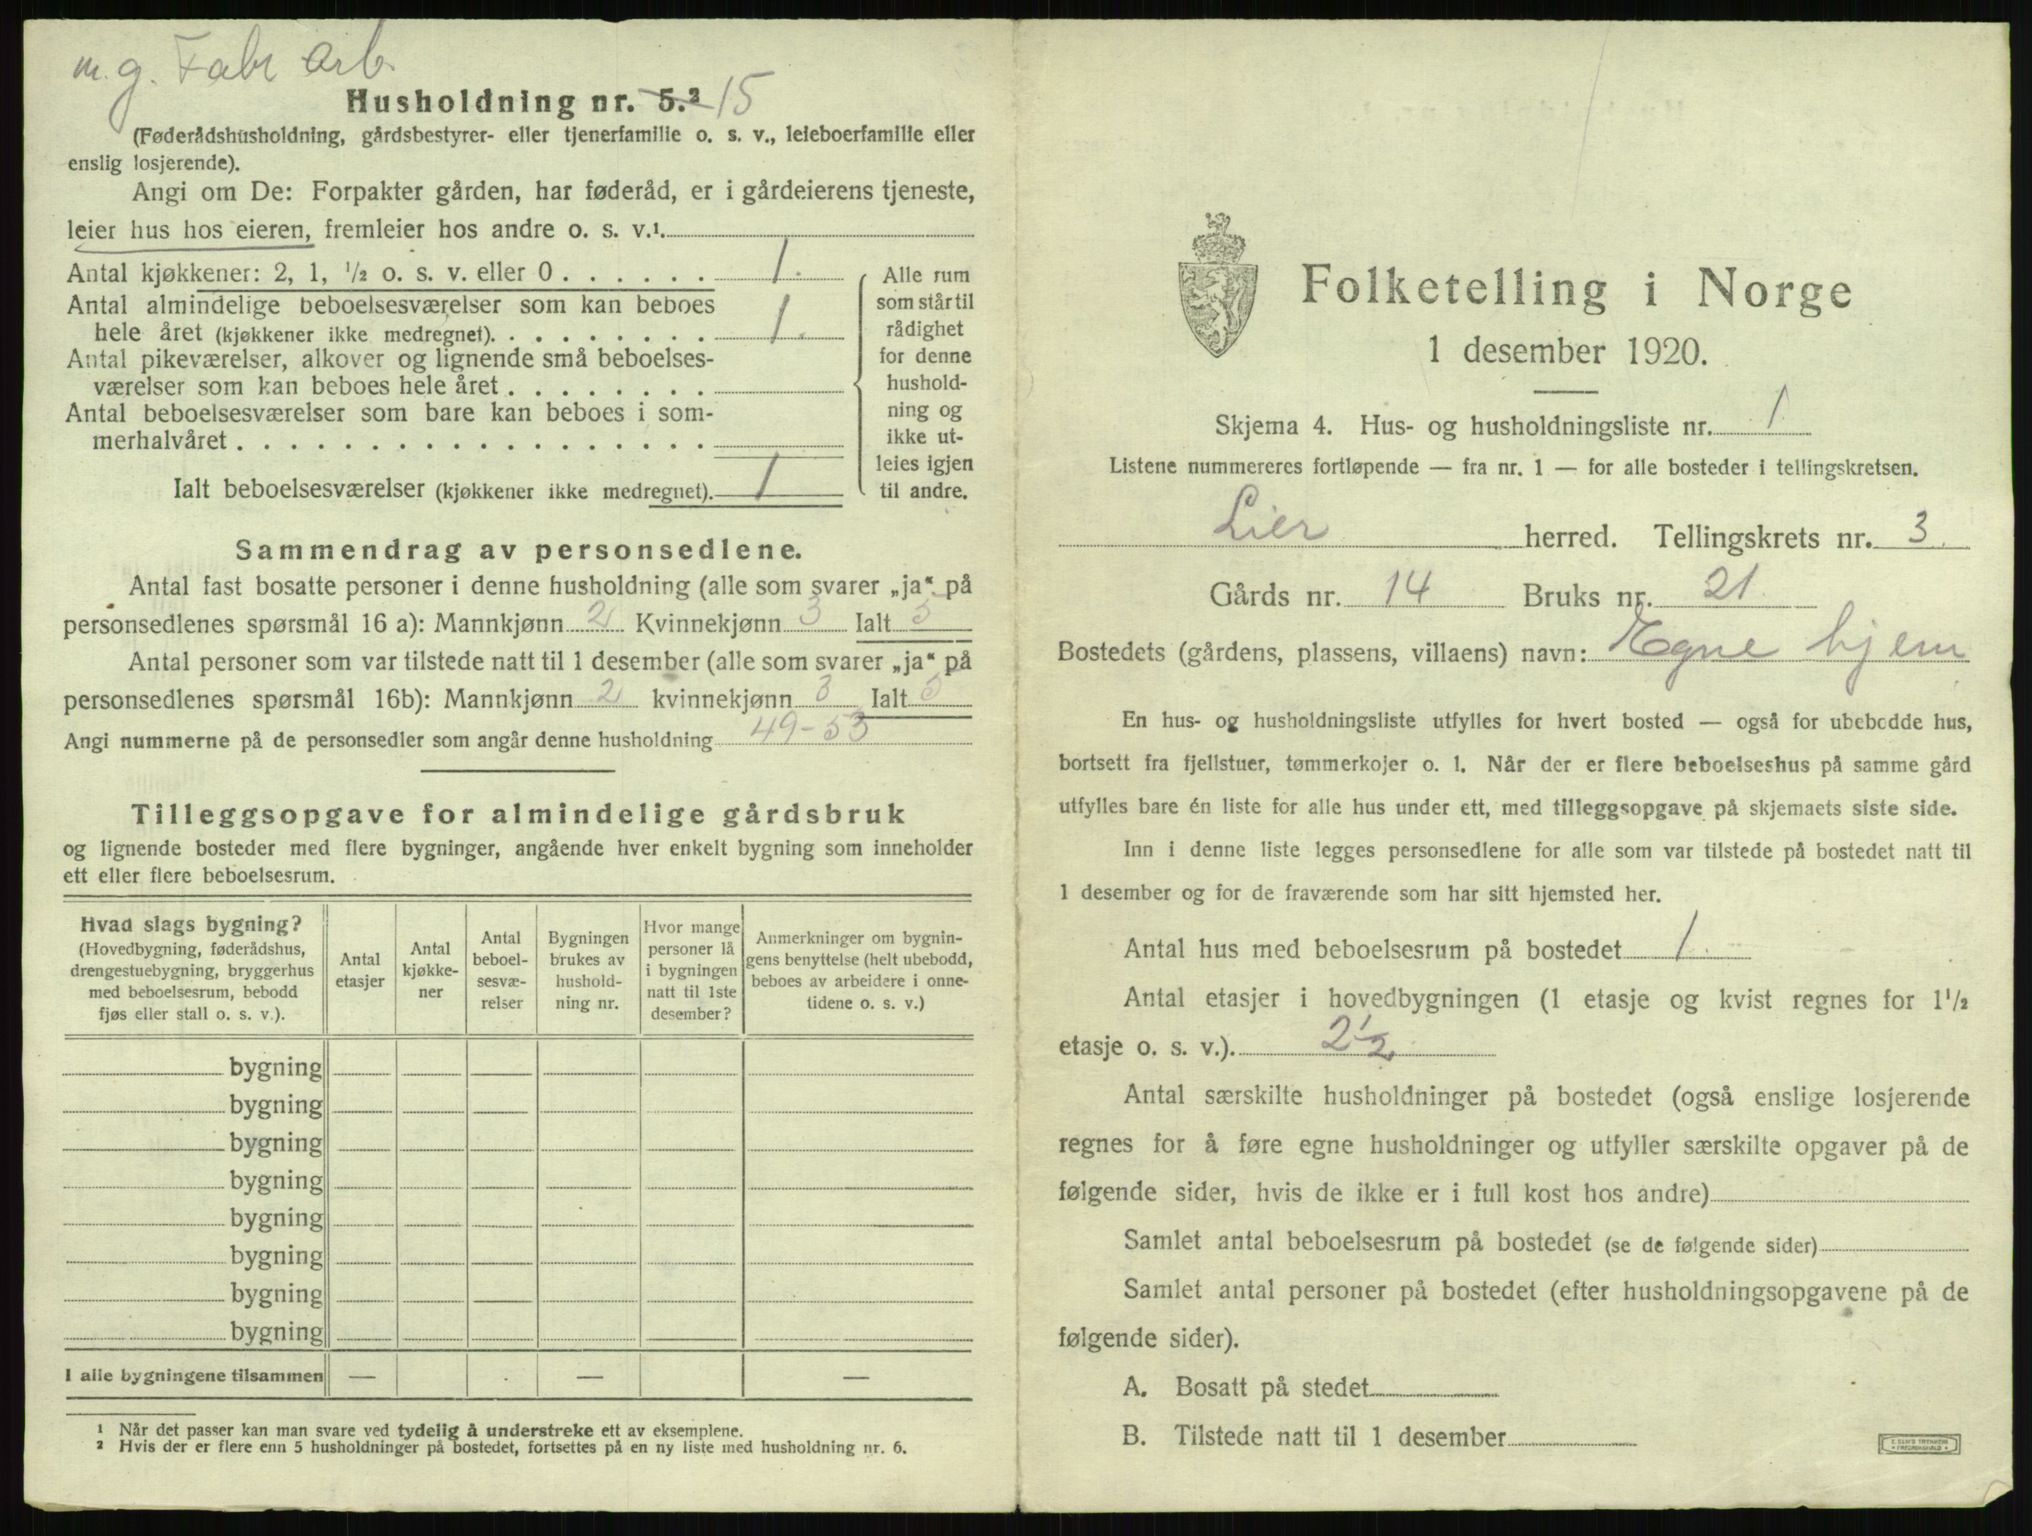 m.g. Fabr arb.
Husholdning nr. 5.² 15
(Føderådshusholdning, gårdsbestyrer- eller tjenerfamilie o. s. v., leieboerfamilie eller
enslig losjerende).
Angi om De: Forpakter gården, har føderåd, er i gårdeierens tjeneste,
leier hus hos eieren, fremleier hos andre o. s. v.¹
Antal kjøkkener: 2, 1, ½ o. s. v. eller 0 . . . . . . 1.
Antal almindelige beboelsesværelser som kan beboes
hele året (kjøkkener ikke medregnet). . . . . . . . . 1.
Antal pikeværelser, alkover og lignende små beboelses-
værelser som kan beboes hele året . . . . . . . .
Antal beboelsesværelser som bare kan beboes i som-
merhalvåret . . . . . . . . . . . . . . . . . .
Ialt beboelsesværelser (kjøkkener ikke medregnet). 1
Alle rum
som står til
rådighet
for denne
hushold-
ning og
ikke ut-
leies igjen
til andre.
Sammendrag av personsedlene.
Antal fast bosatte personer i denne husholdning (alle som svarer „ja“ på
personsedlenes spørsmål 16 a): Mannkjønn 2 Kvinnekjønn 3 Ialt 5
Antal personer som var tilstede natt til 1 desember (alle som svarer „ja“ på
personsedlenes spørsmål 16b): Mannkjønn 2 kvinnekjønn 3 Ialt 5
Angi nummerne på de personsedler som angår denne husholdning 49-53
Tilleggsopgave for almindelige gårdsbruk
og lignende bosteder med flere bygninger, angående hver enkelt bygning som inneholder
ett eller flere beboelsesrum.
Hvad slags bygning?
(Hovedbygning, føderådshus,
drengestuebygning, bryggerhus
med beboelsesrum, bebodd
fjøs eller stall o. s. v.).
Antal
etasjer
Antal
kjøkke-
ner
Antal
beboel-
sesvæ-
relser
Bygningen
brukes av
hushold-
ning nr.
Hvor mange
personer lå
i bygningen
natt til 1ste
desember?
Anmerkninger om bygnin-
gens benyttelse (helt ubebodd,
beboes av arbeidere i onne-
tidene o. s. v.)
bygning
bygning
bygning
bygning
bygning
bygning
bygning
bygning
I alle bygningene tilsammen — — —
¹ Når det passer kan man svare ved tydelig å understreke ett av eksemplene.
² Hvis der er flere enn 5 husholdninger på bostedet, fortsettes på en ny liste med husholdning nr. 6.
Folketelling i Norge
1 desember 1920.
Skjema 4. Hus- og husholdningsliste nr. 1
Listene nummereres fortløpende — fra nr. 1 — for alle bosteder i tellingskretsen.
Lier herred. Tellingskrets nr. 3.
Gårds nr. 14 Bruks nr. 21.
Bostedets (gårdens, plassens, villaens) navn: Egne hjem
En hus- og husholdningsliste utfylles for hvert bosted — også for ubebodde hus,
bortsett fra fjellstuer, tømmerkojer o. l. Når der er flere beboelseshus på samme gård
utfylles bare én liste for alle hus under ett, med tilleggsopgave på skjemaets siste side.
Inn i denne liste legges personsedlene for alle som var tilstede på bostedet natt til
1 desember og for de fraværende som har sitt hjemsted her.
Antal hus med beboelsesrum på bostedet 1.
Antal etasjer i hovedbygningen (1 etasje og kvist regnes for 1½
etasje o. s. v.). 2½
Antal særskilte husholdninger på bostedet (også enslige losjerende
regnes for å føre egne husholdninger og utfyller særskilte opgaver på de
følgende sider, hvis de ikke er i full kost hos andre)
Samlet antal beboelsesrum på bostedet (se de følgende sider)
Samlet antal personer på bostedet (efter husholdningsopgavene på de
følgende sider).
A. Bosatt på stedet
B. Tilstede natt til 1 desember